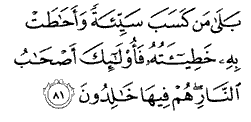 بَلَىٰ مَن كَسَبَ سَيِّئَةً وَأَحَٰطَتْ
بِهِۦ خَطِيٓـَٔتُهُۥ فَأُوْلَٰٓئِكَ أَصْحَٰبُ
ٱلنَّارِۖ هُمْ فِيهَا خَٰلِدُونَ ٨١